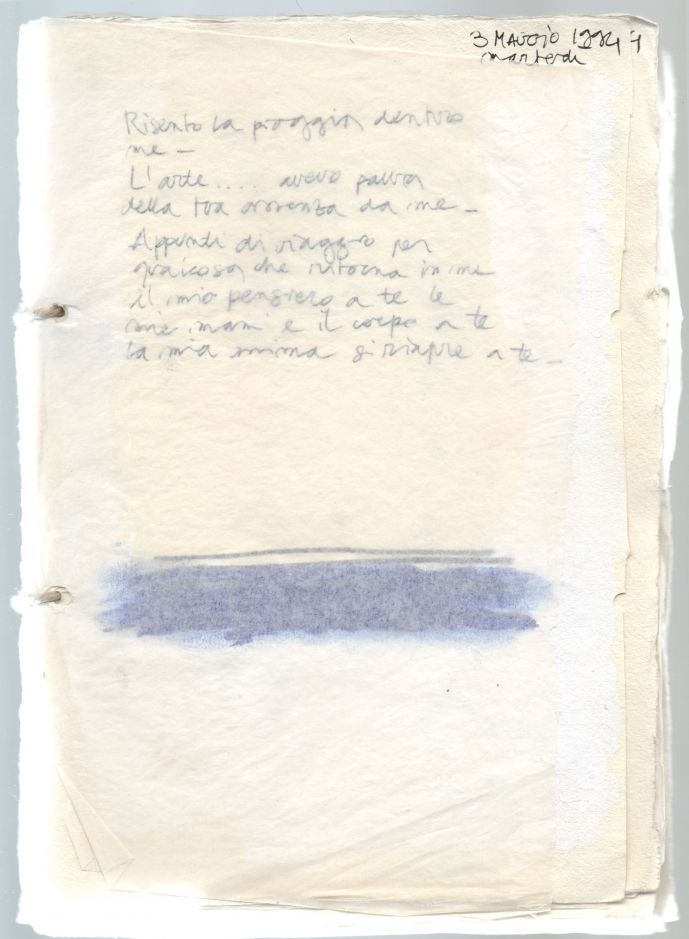 3 MAGGIO 1994
martedì
Risento la pioggia dentro
me –
L'arte.... avevo paura
della tua assenza da me –
Appunti di viaggio per
qualcosa che ritorna in me
il mio pensiero a te le
mie mani e il corpo a te
la mia anima si riapre a te –